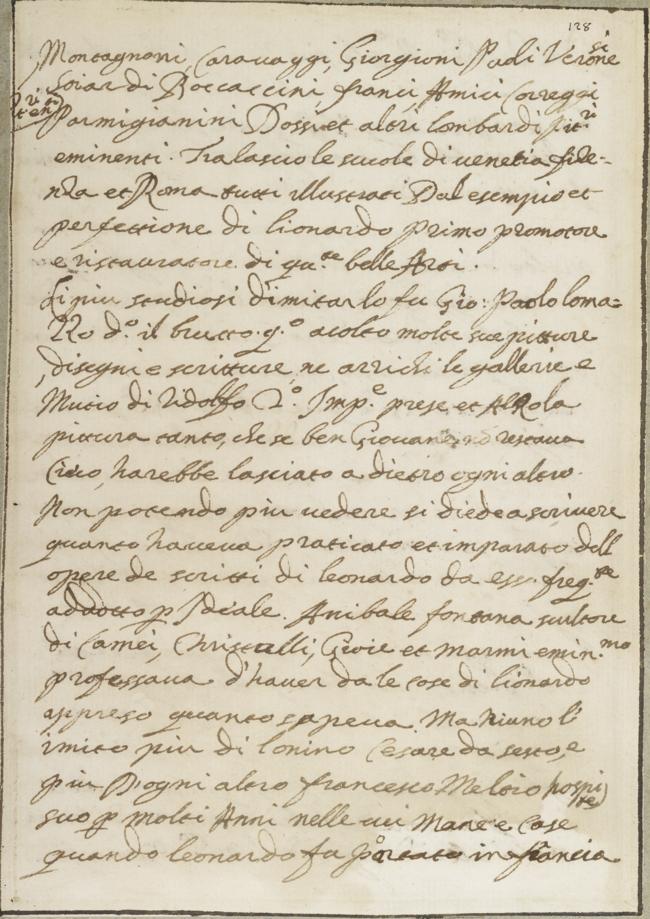 128
Montagnani, Caravaggi, Giorgioni Paoli Veronesi
Soiardi Boccaccini, franci, Amici Correggi
Parmigianini Dossi et altri lombardi Pit.ri
eminenti. Tralascio le scuole di venetia fiore-
nza et Roma tutti illustrati Dal esempio et
perfettione di lionardo Primo promotore
e ristauratore di qu.te belle Arti.
Li piu studiosi d'imitarlo fu Gio: Paolo loma=
zzo d.o il brutto. q.o acolto molte sue pitture
disegni e scritture, ne arrichi le gallerie e
Museo di Ridolfo 2.o Imp.e prese et
pittura tanto, che se ben Giovane, nō restava
Cieco, harebbe lasciato a dietro ogni altro.
Non potendo piu vedere si diede a scrivere
quanto haveva praticato et imparato dell
opere de scritti di leonardo da ess. freq.te
addotto p Ideale. Anibale fontana scultore
di Camei, Christalli, Gioie et marmi emin.mo
professava d'haver da le cose di lionardo
appreso quanto sapeva. Ma niuno li
imito piu di Cesare da sesto, e
piu D'ogni altro francesco Meltio hospite
suo p molti Anni nelle cui Mani e Case
quando leonardo fu portato in francia